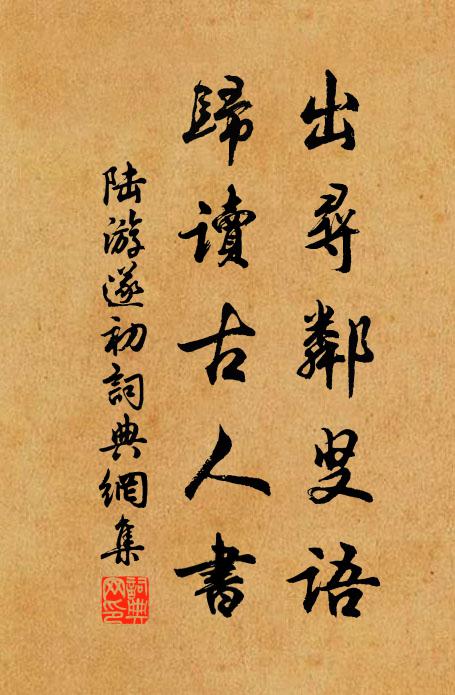 出尋鄰叟語
歸讀古人書
陸游遂初詞典網集
詞典網印